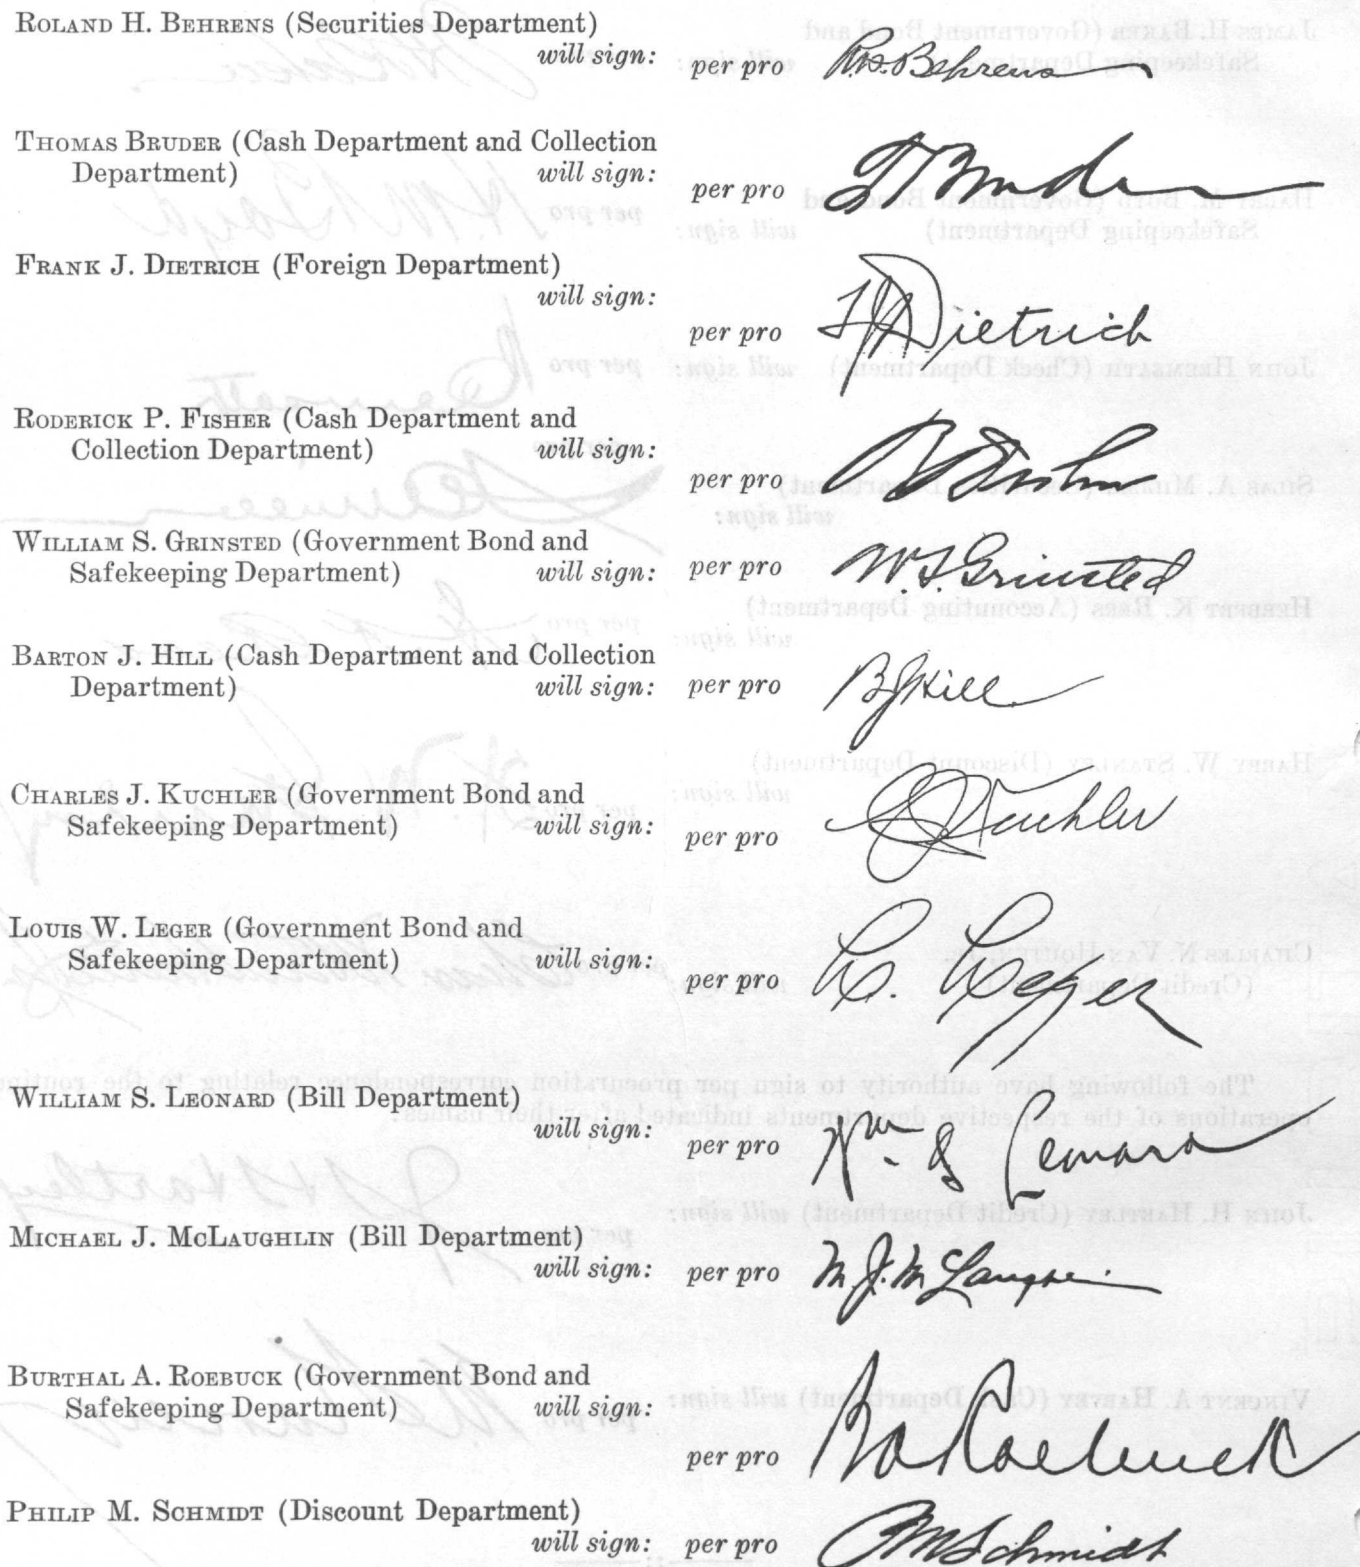 ROLAND H. BEHRENS (Securities Department)
will sign: per pro R.H. Behrens
THOMAS BRUDER (Cash Department and Collection
Department) will sign: per pro T Bruder
FRANK J. DIETRICH (Foreign Department)
will sign:
per pro FJDietrich
RODERICK P. FISHER (Cash Department and
Collection Department) will sign:
per pro
WILLIAM S. GRINSTED (Government Bond and
Safekeeping Department) will sign: per pro W.S. Grinsted
BARTON J. HILL (Cash Department and Collection
Department) will sign: per pro BJHill
CHARLES J. KUCHLER (Government Bond and
Safekeeping Department) will sign: per pro CJKuchler
LOUIS W. LEGER (Government Bond and
Safekeeping Department) will sign:
per pro L. Leger
WILLIAM S. LEONARD (Bill Department)
will sign: per pro Wm S Leonard
MICHAEL J. MCLAUGHLIN (Bill Department)
will sign: per pro M.J. McLaughlin
BURTHAL A. ROEBUCK (Government Bond and
Safekeeping Department) will sign:
per pro BARoebuck
PHILIP M. SCHMIDT (Discount Department)
will sign: per pro PMSchmidt